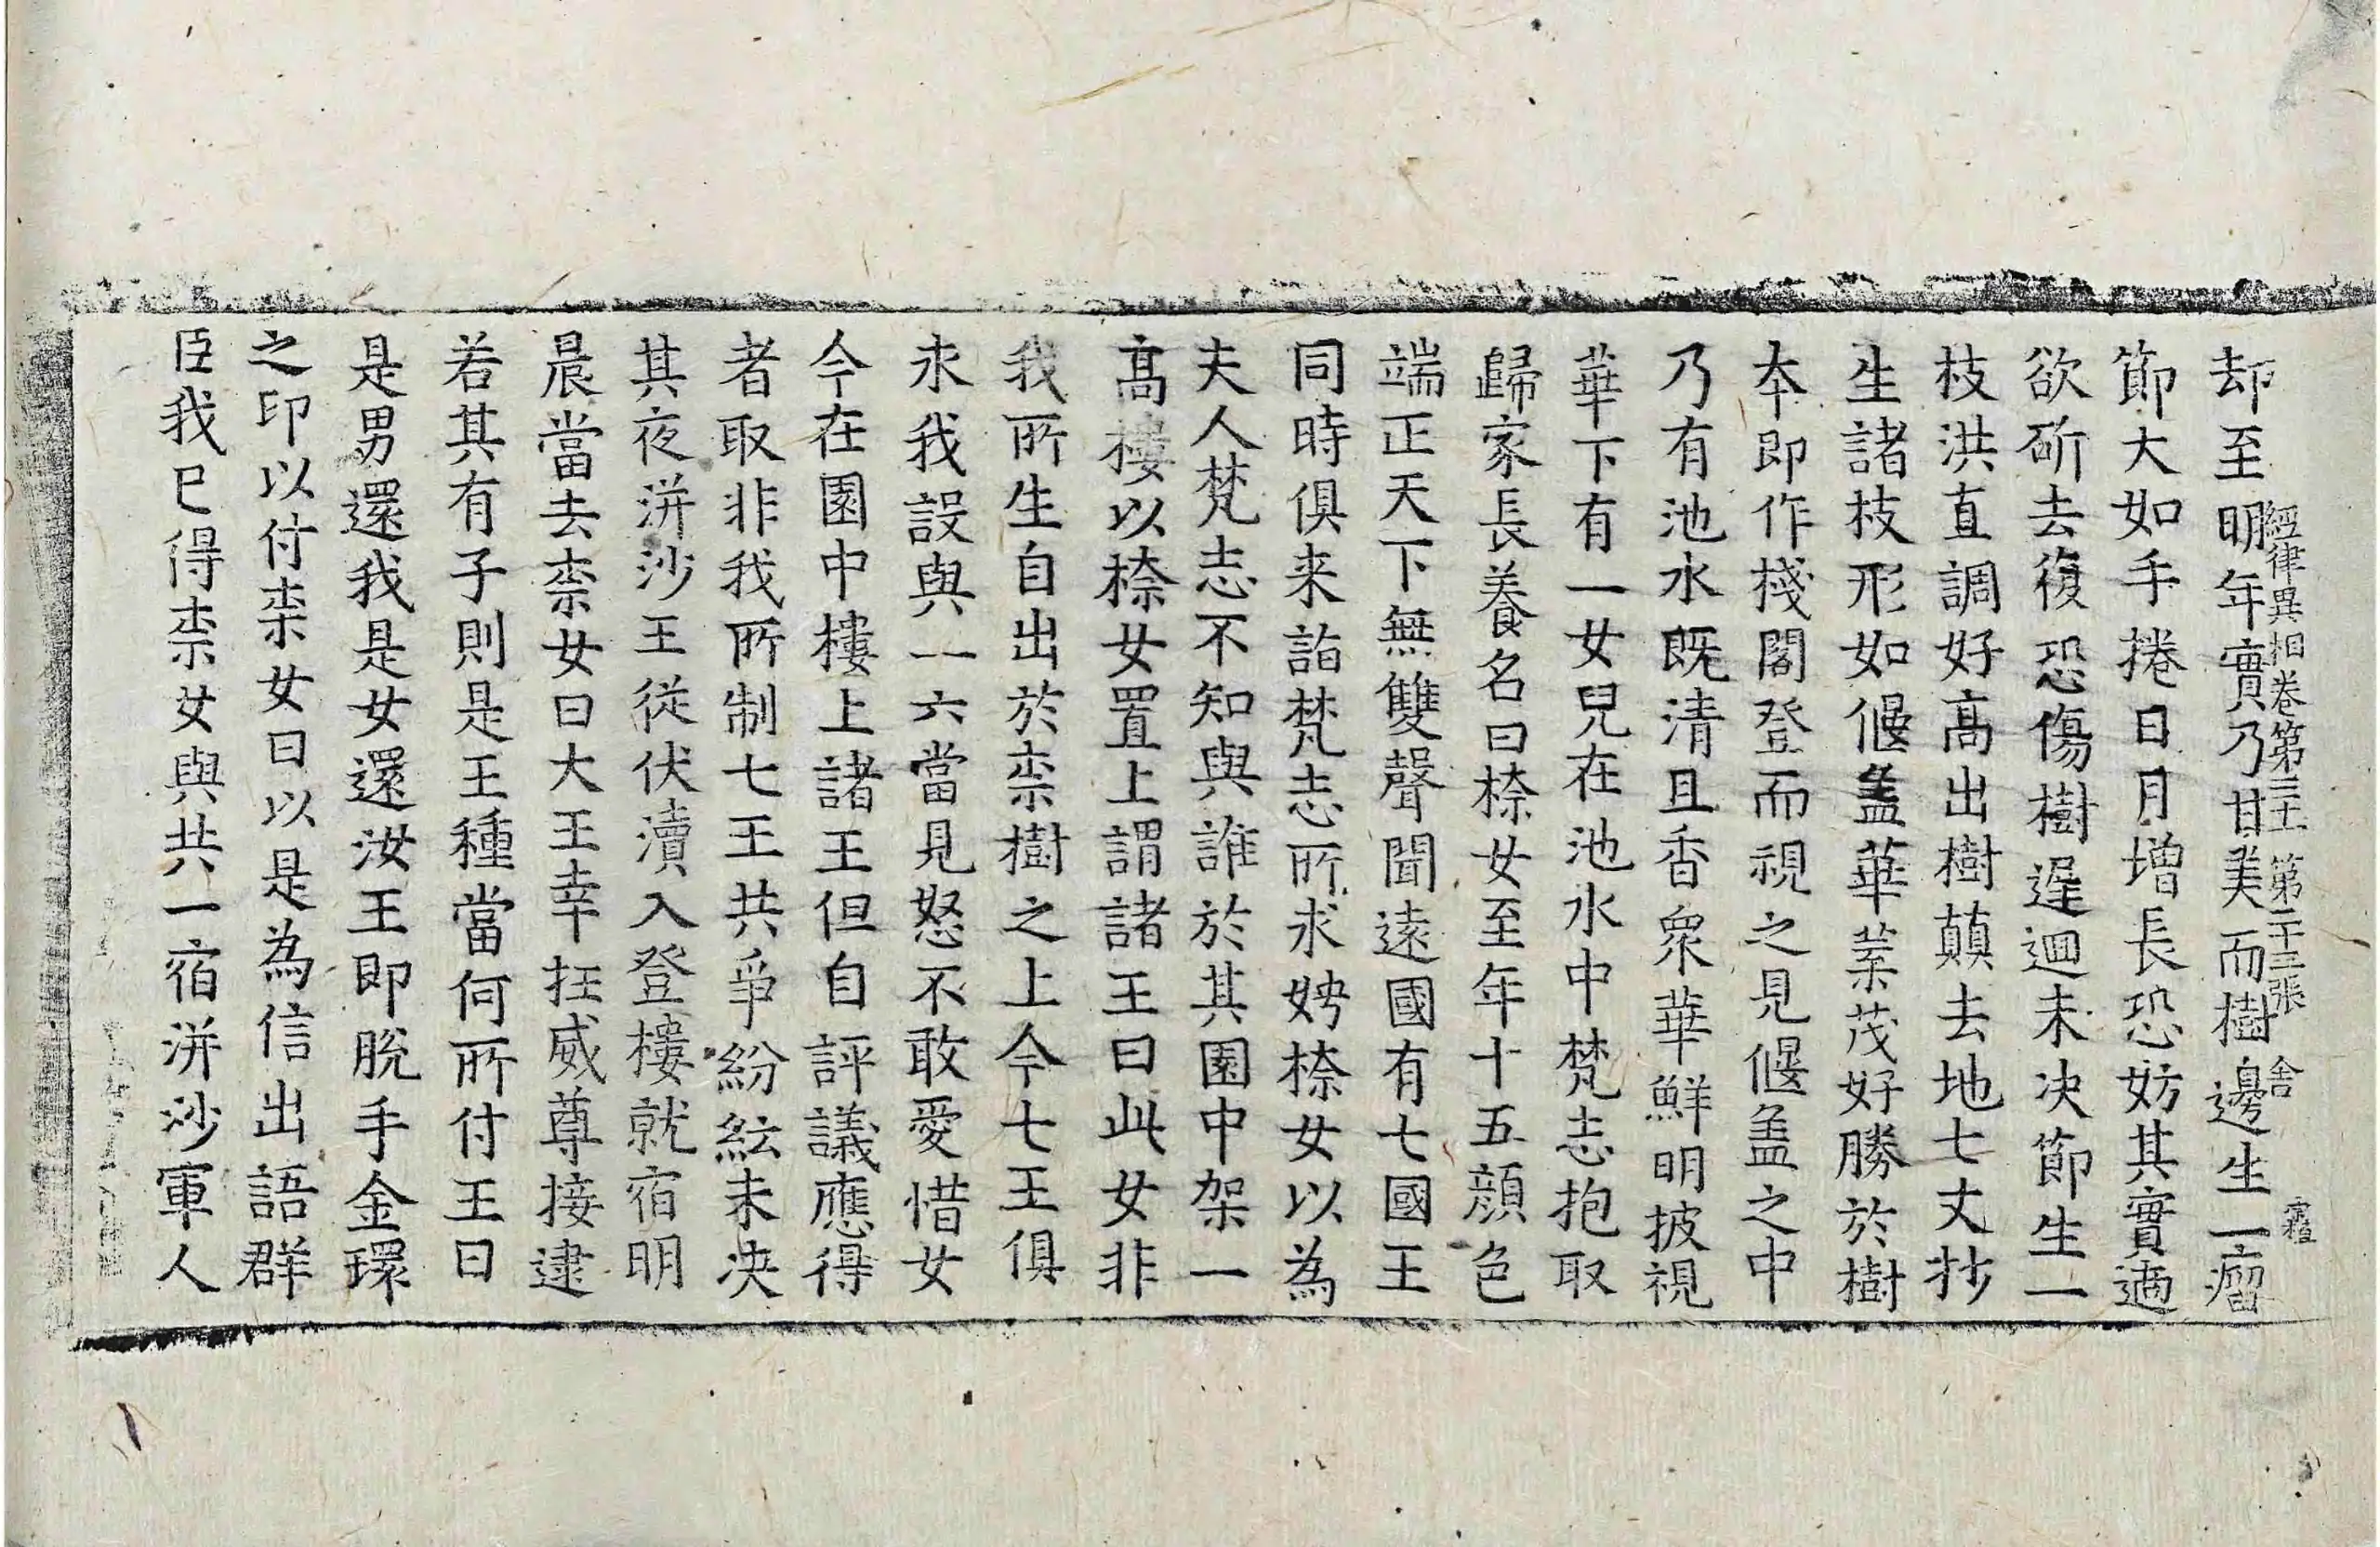 却至明年實乃甘美而樹邊生一瘤
經律異相卷第三十一 第二十三張 舍
節大如手捲日月增長恐妨其實適
欲斫去復恐傷樹遅迴未决節生一
枝洪直調好髙出樹蕱去地七丈抄
生諸枝形如偃盖華葉茂好勝於樹
本即作棧閣登而視之見偃盖之中
乃有池水既清且香衆華鮮明披視
華下有一女兒在池水中梵志抱取
歸家長養名曰㮈女至年十五顔色
端正天下無雙聲聞遠國有七國王
同時俱来詣梵志所求娉㮈女以為
夫人梵志不知與誰於其園中架一
髙樓以㮈女置上謂諸王曰此女非
我所生自出於柰樹之上今七王俱
求我設與一六當見怒不敢愛惜女
今在園中樓上諸王但自評議應得
者取非我所制七王共爭紛紜未决
其夜洴沙王從伏瀆入登樓就宿明
晨當去柰女曰大王幸抂威尊接逮
若其有子則是王種當何所付王曰
是男還我是女還汝王即脫手金環
之印以付柰女曰以是為信出語群
臣我已得柰女與共一宿洴沙軍人